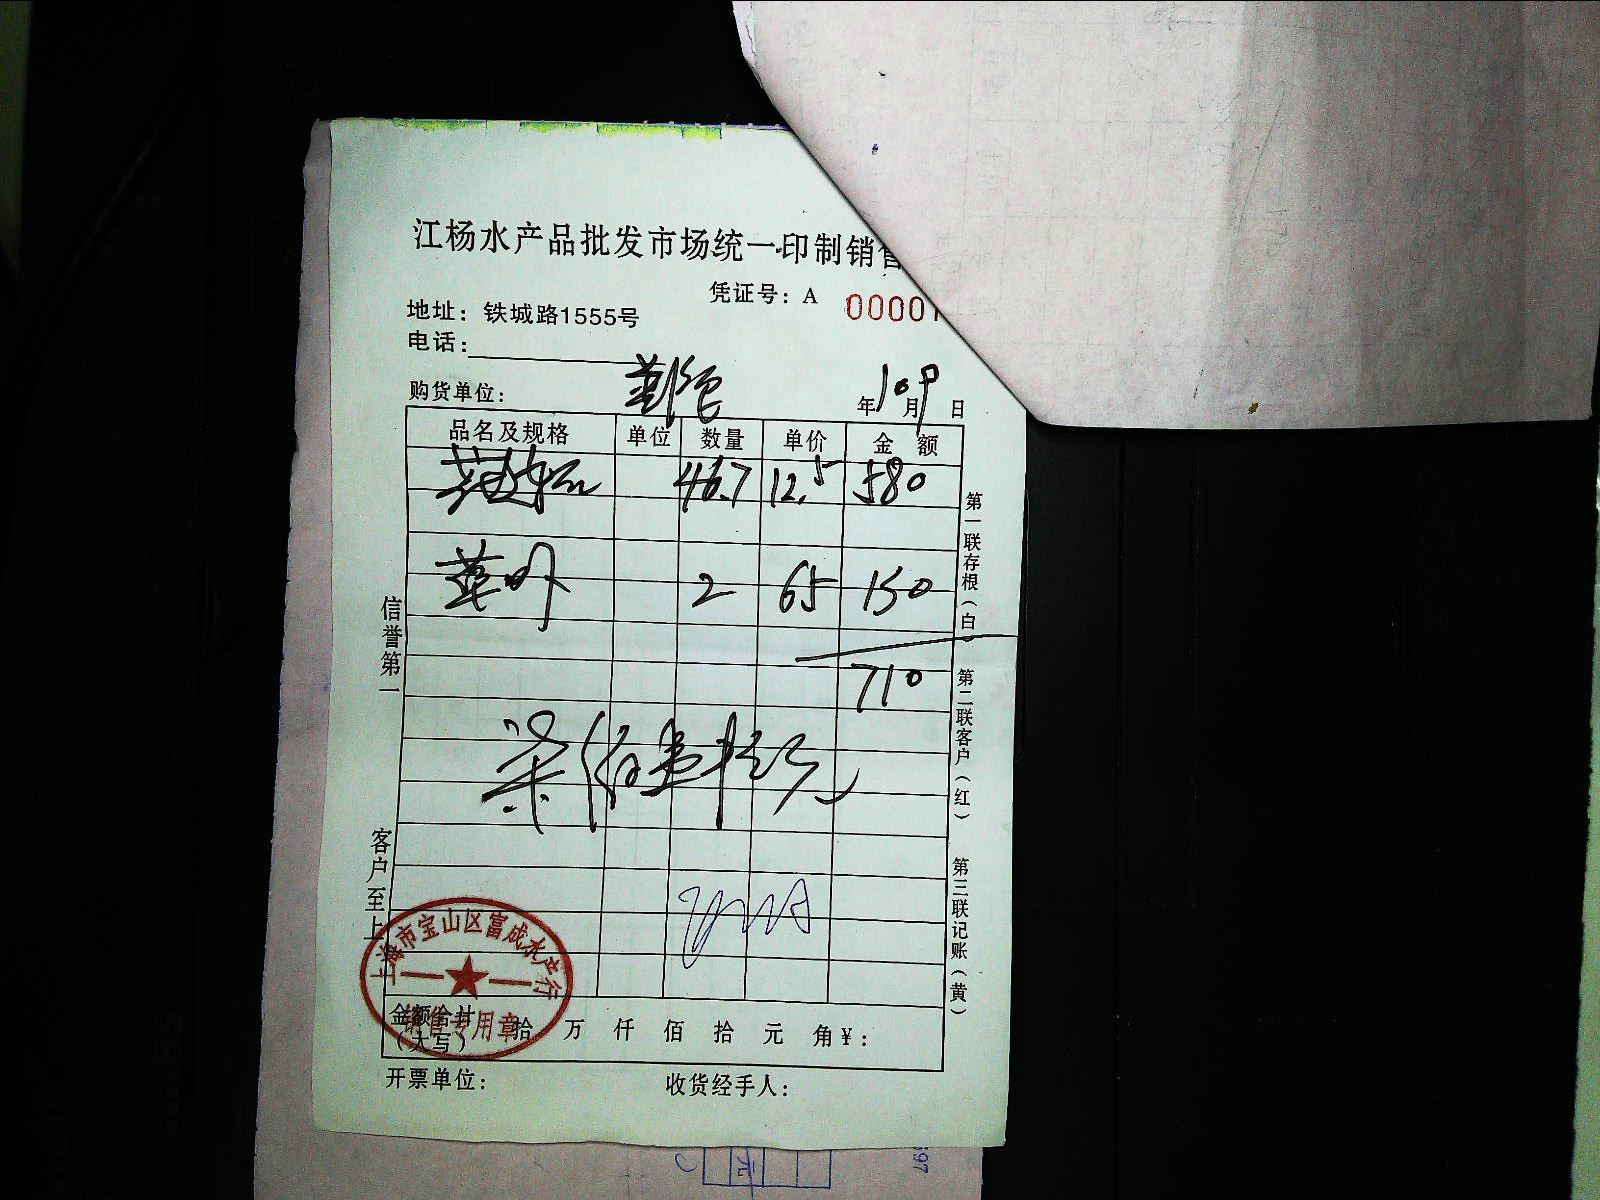 江杨水产品批发市场统一印制销售
凭证号：A 00001
地址：铁城路1555号
电话：
购货单位： 年10月9日
品名及规格 单位 数量 单价 金额
46.7 12.5 580
2 65 150
710
柒佰壹拾元
信誉第一
客户至上
第一联存根（白）
第二联客户（红）
第三联记账（黄）
上海市宝山区富成水产行
销售专用章
金额合计（大写） 拾 万 仟 佰 拾 元 角 ¥：
开票单位： 收货经手人：
元
597